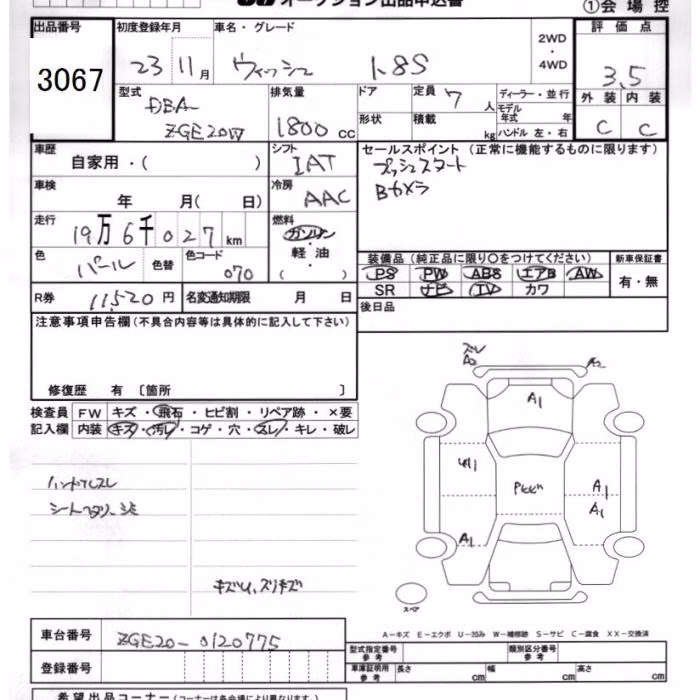 オークション出品申込書
①会場控
出品番号 初度登録年月 車名・グレード 評価点
3067 23 11月 ウィッシュ 1.8S 2WD・4WD 3.5
型式 排気量 ドア 定員 7人 ディーラー・並行 外装 内装
DBA- ZGE20W 1800cc 形状 積載 kg モデル年式 年 ハンドル 左・右 C C
車歴 自家用・( ) シフト IAT セールスポイント (正常に機能するものに限ります)
プッシュスタート
Bカメラ
車検 年 月( 日) 冷房 AAC
走行 19万6千027km 燃料 ガソリン・軽油・( )
色 パール 色替 色コード 070
装備品 (純正品に限り○をつけてください) 新車保証書
PS PW ABS エアB AW 有・無
SR ナビ TV カワ
R券 11,520円 名変通知期限 月 日 後日品
注意事項申告欄(不具合内容等は具体的に記入して下さい)
修復歴 有 〔箇所 〕
検査員 FW キズ・飛石・ヒビ割・リペア跡・×要
記入欄 内装 キズ・汚レ・コゲ・穴・スレ・キレ・破レ
ハンドルスレ
キズU、スリキズ
ズレ
A2
A1
A1
A1
A1
スペア
A-キズ E-エクボ U-凹み W-補修跡 S-サビ C-腐食 XX-交換済
車台番号 ZGE20-0120775
型式指定番号 参考 類別区分番号 参考
登録番号 車庫証明用 参考 長さ cm 幅 cm 高さ cm
希望出品コーナー(コーナーは各会場により異なります。)